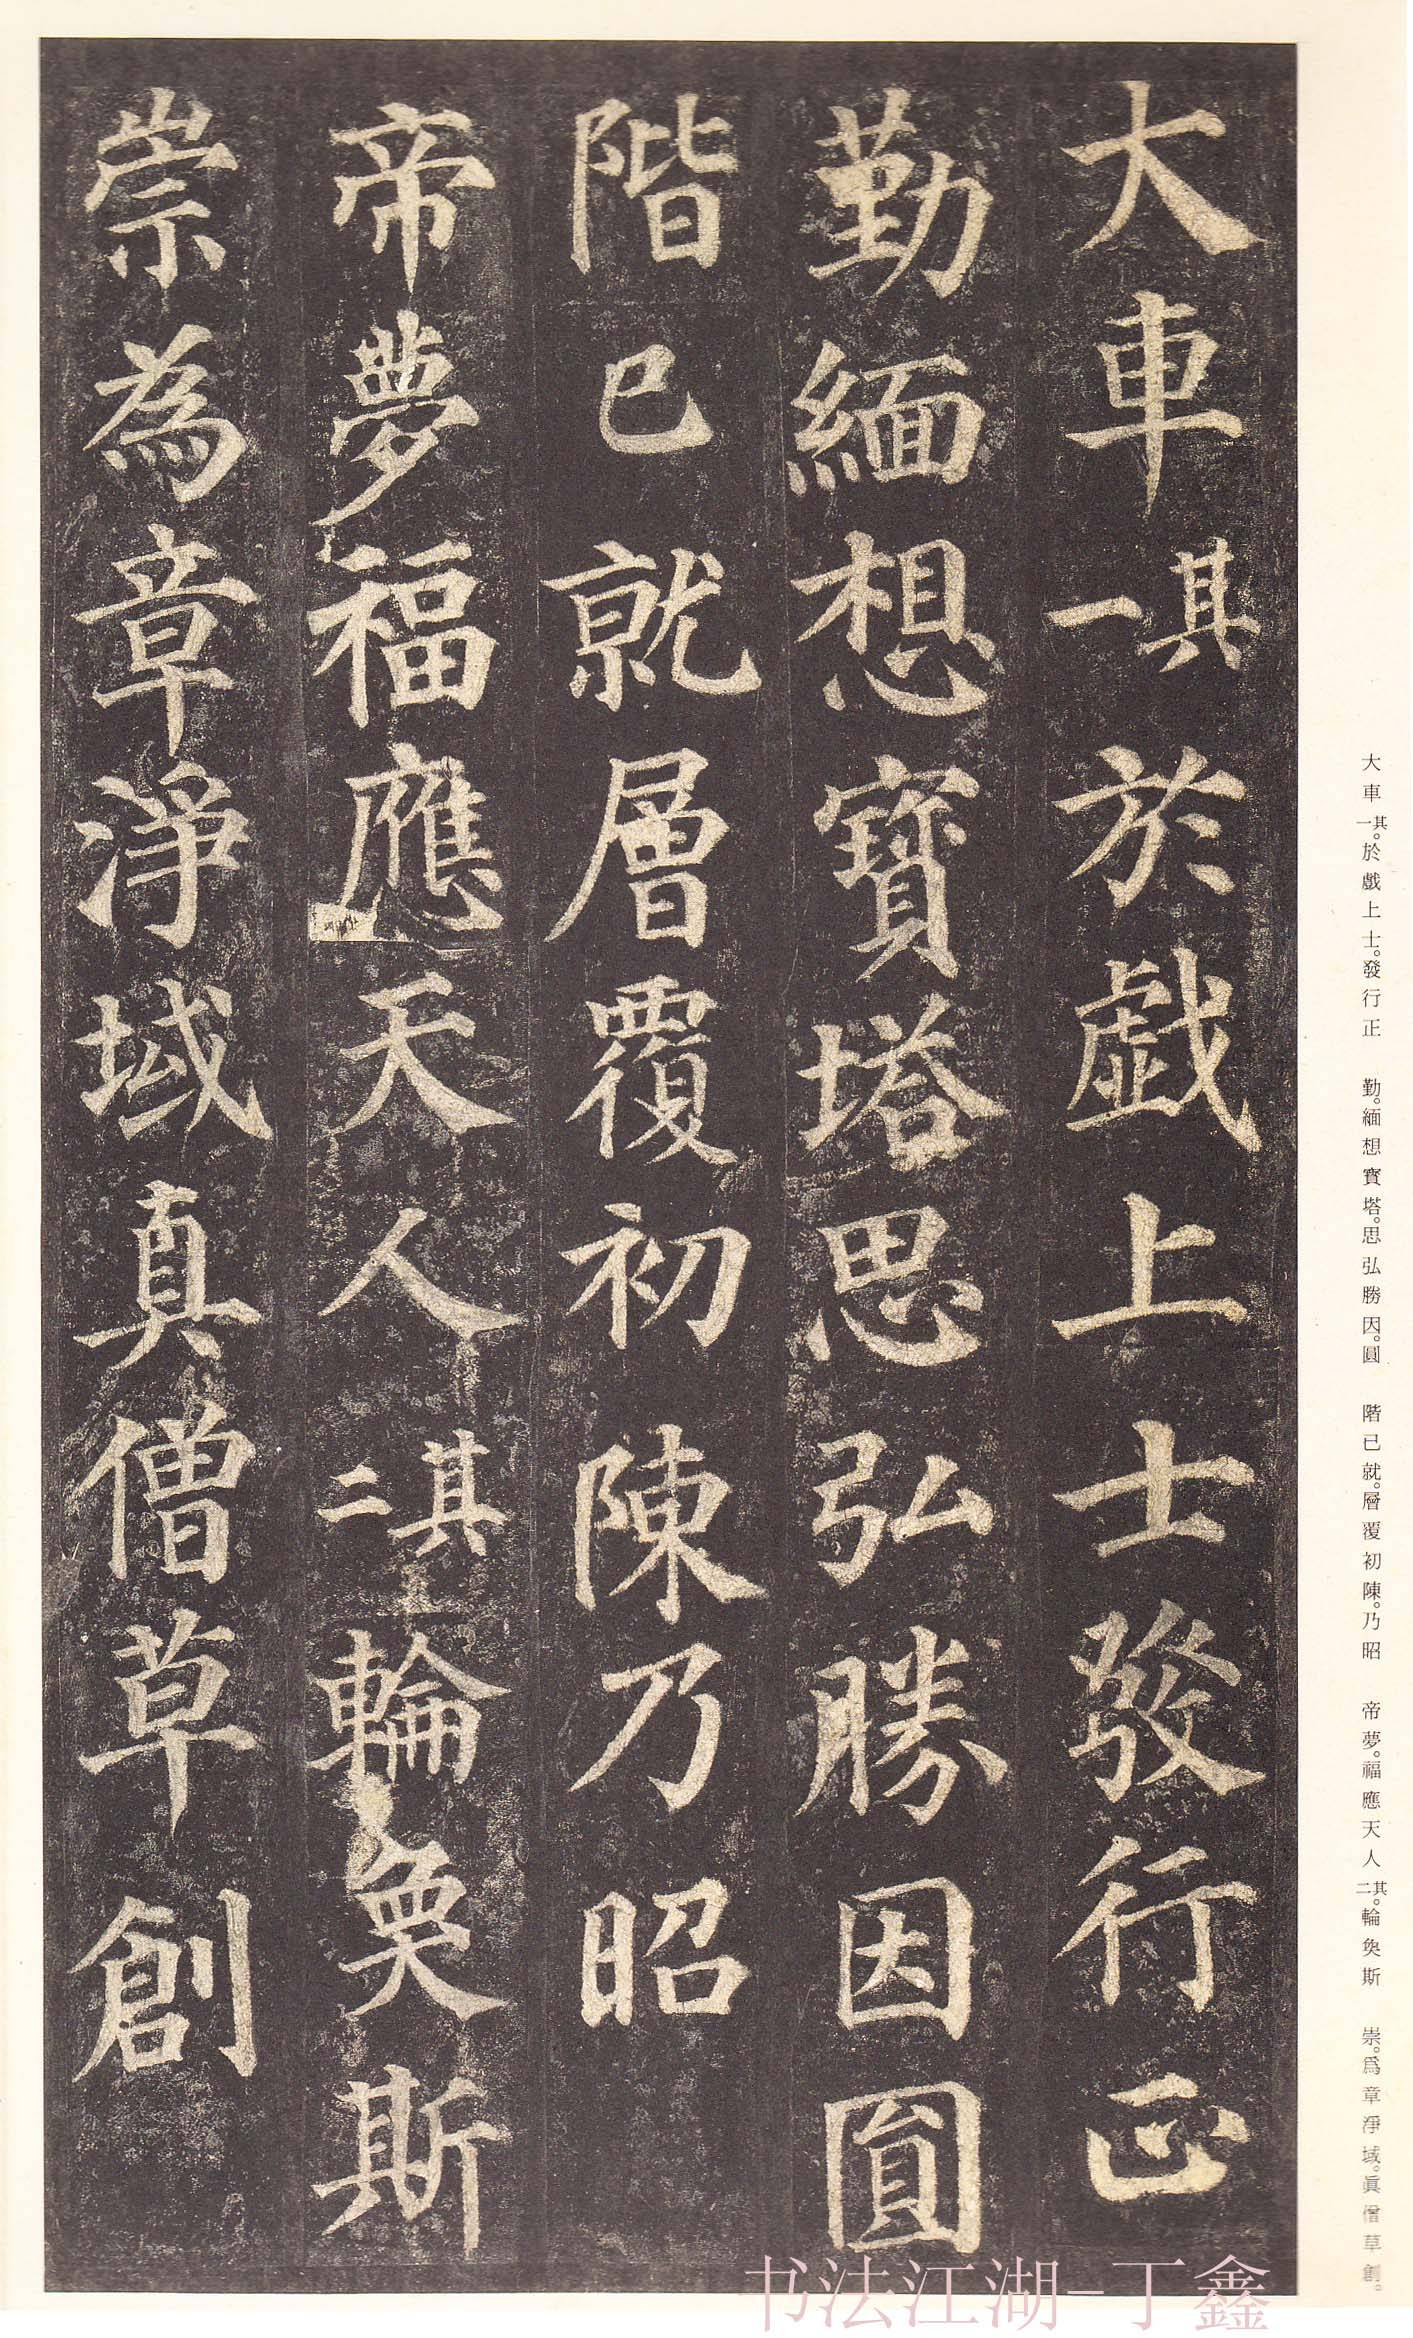 大車其一於戯上士發行正
勤緬想寶塔思弘勝因圓
階已就層覆初陳乃昭
帝夢福應天人其二輪奐斯
崇為章淨域真僧草創
大車其一。於戲上士。發行正　勤。緬想寶塔。思弘勝因。圓　階已就。層覆初陳。乃昭　帝夢。福應天人其二。輪奐斯　崇。爲章淨域。眞僧草創。
书法江湖-丁鑫